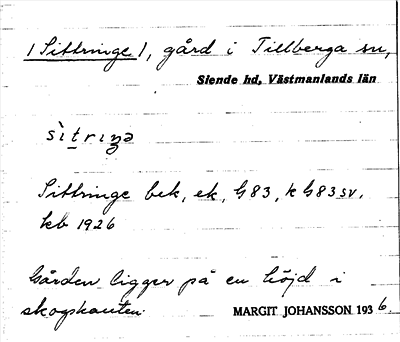 /Sittringe/, gård i Tillberga sn,
Siende hd, Västmanlands län
sìtriŋə
Sittringe bek, ek, G83, kG83sv,
kb 1926
Gården ligger på en höjd i
skogskanten.
MARGIT JOHANSSON 1936.